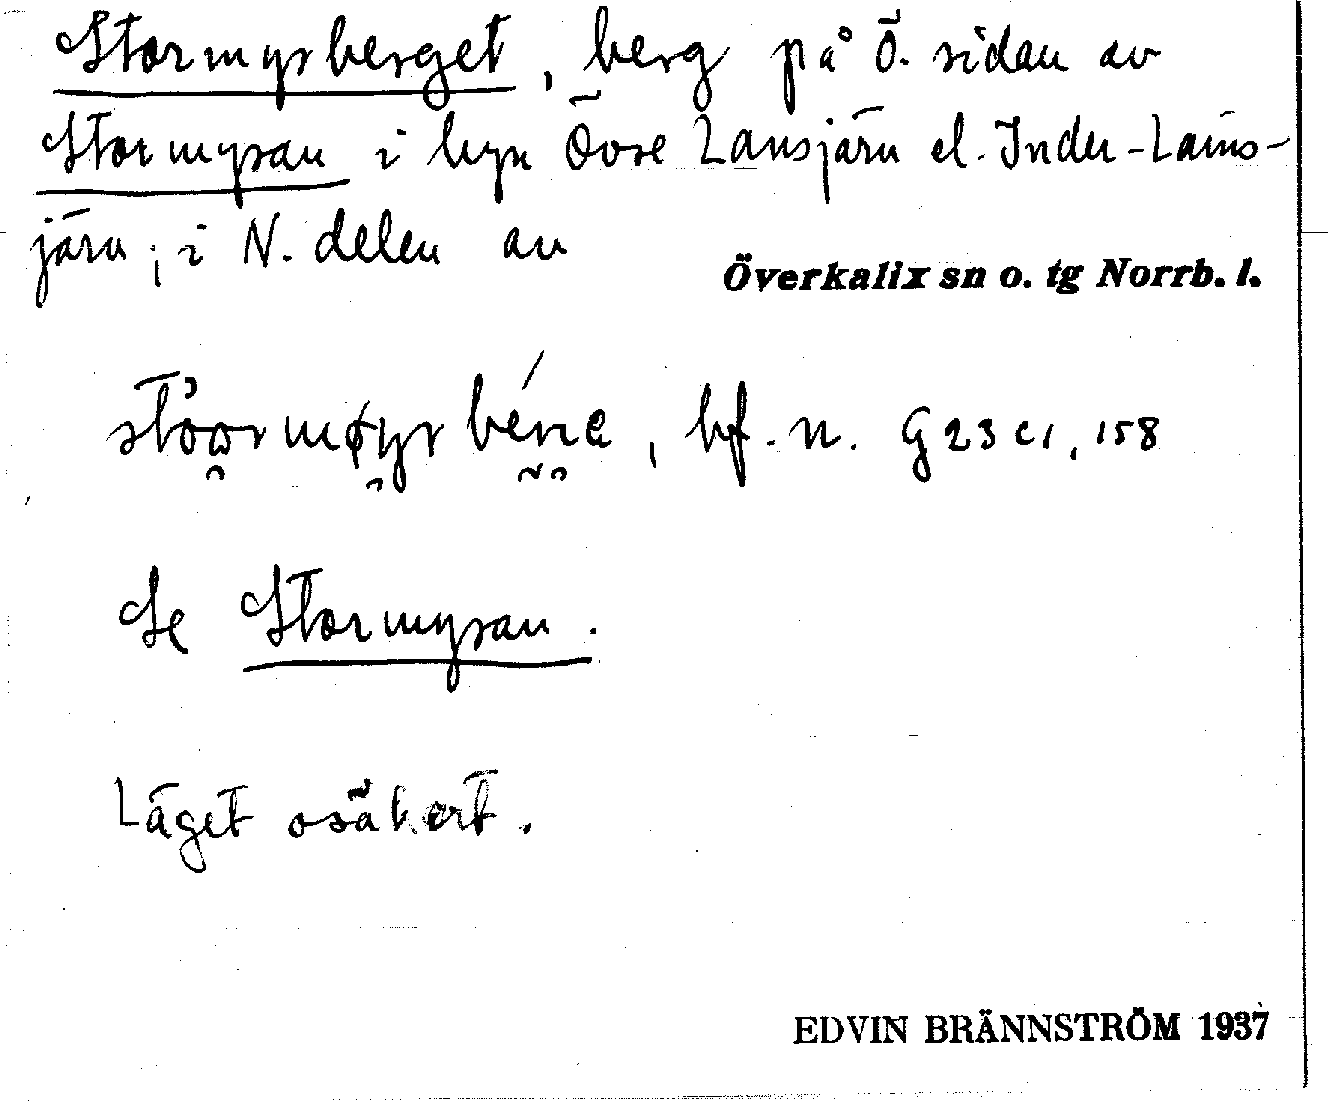 Stormyrberget, berg på Ö. sidan av
Stormyran i byn Övre Lansjärv el. Inder-Lans-
järv, i N. delen av
Överkalix sn o. tg Norrb. l.
bf. n. G 23 c1, 158
Se Stormyran.
Läget osäkert.
EDVIN BRÄNNSTRÖM 1937